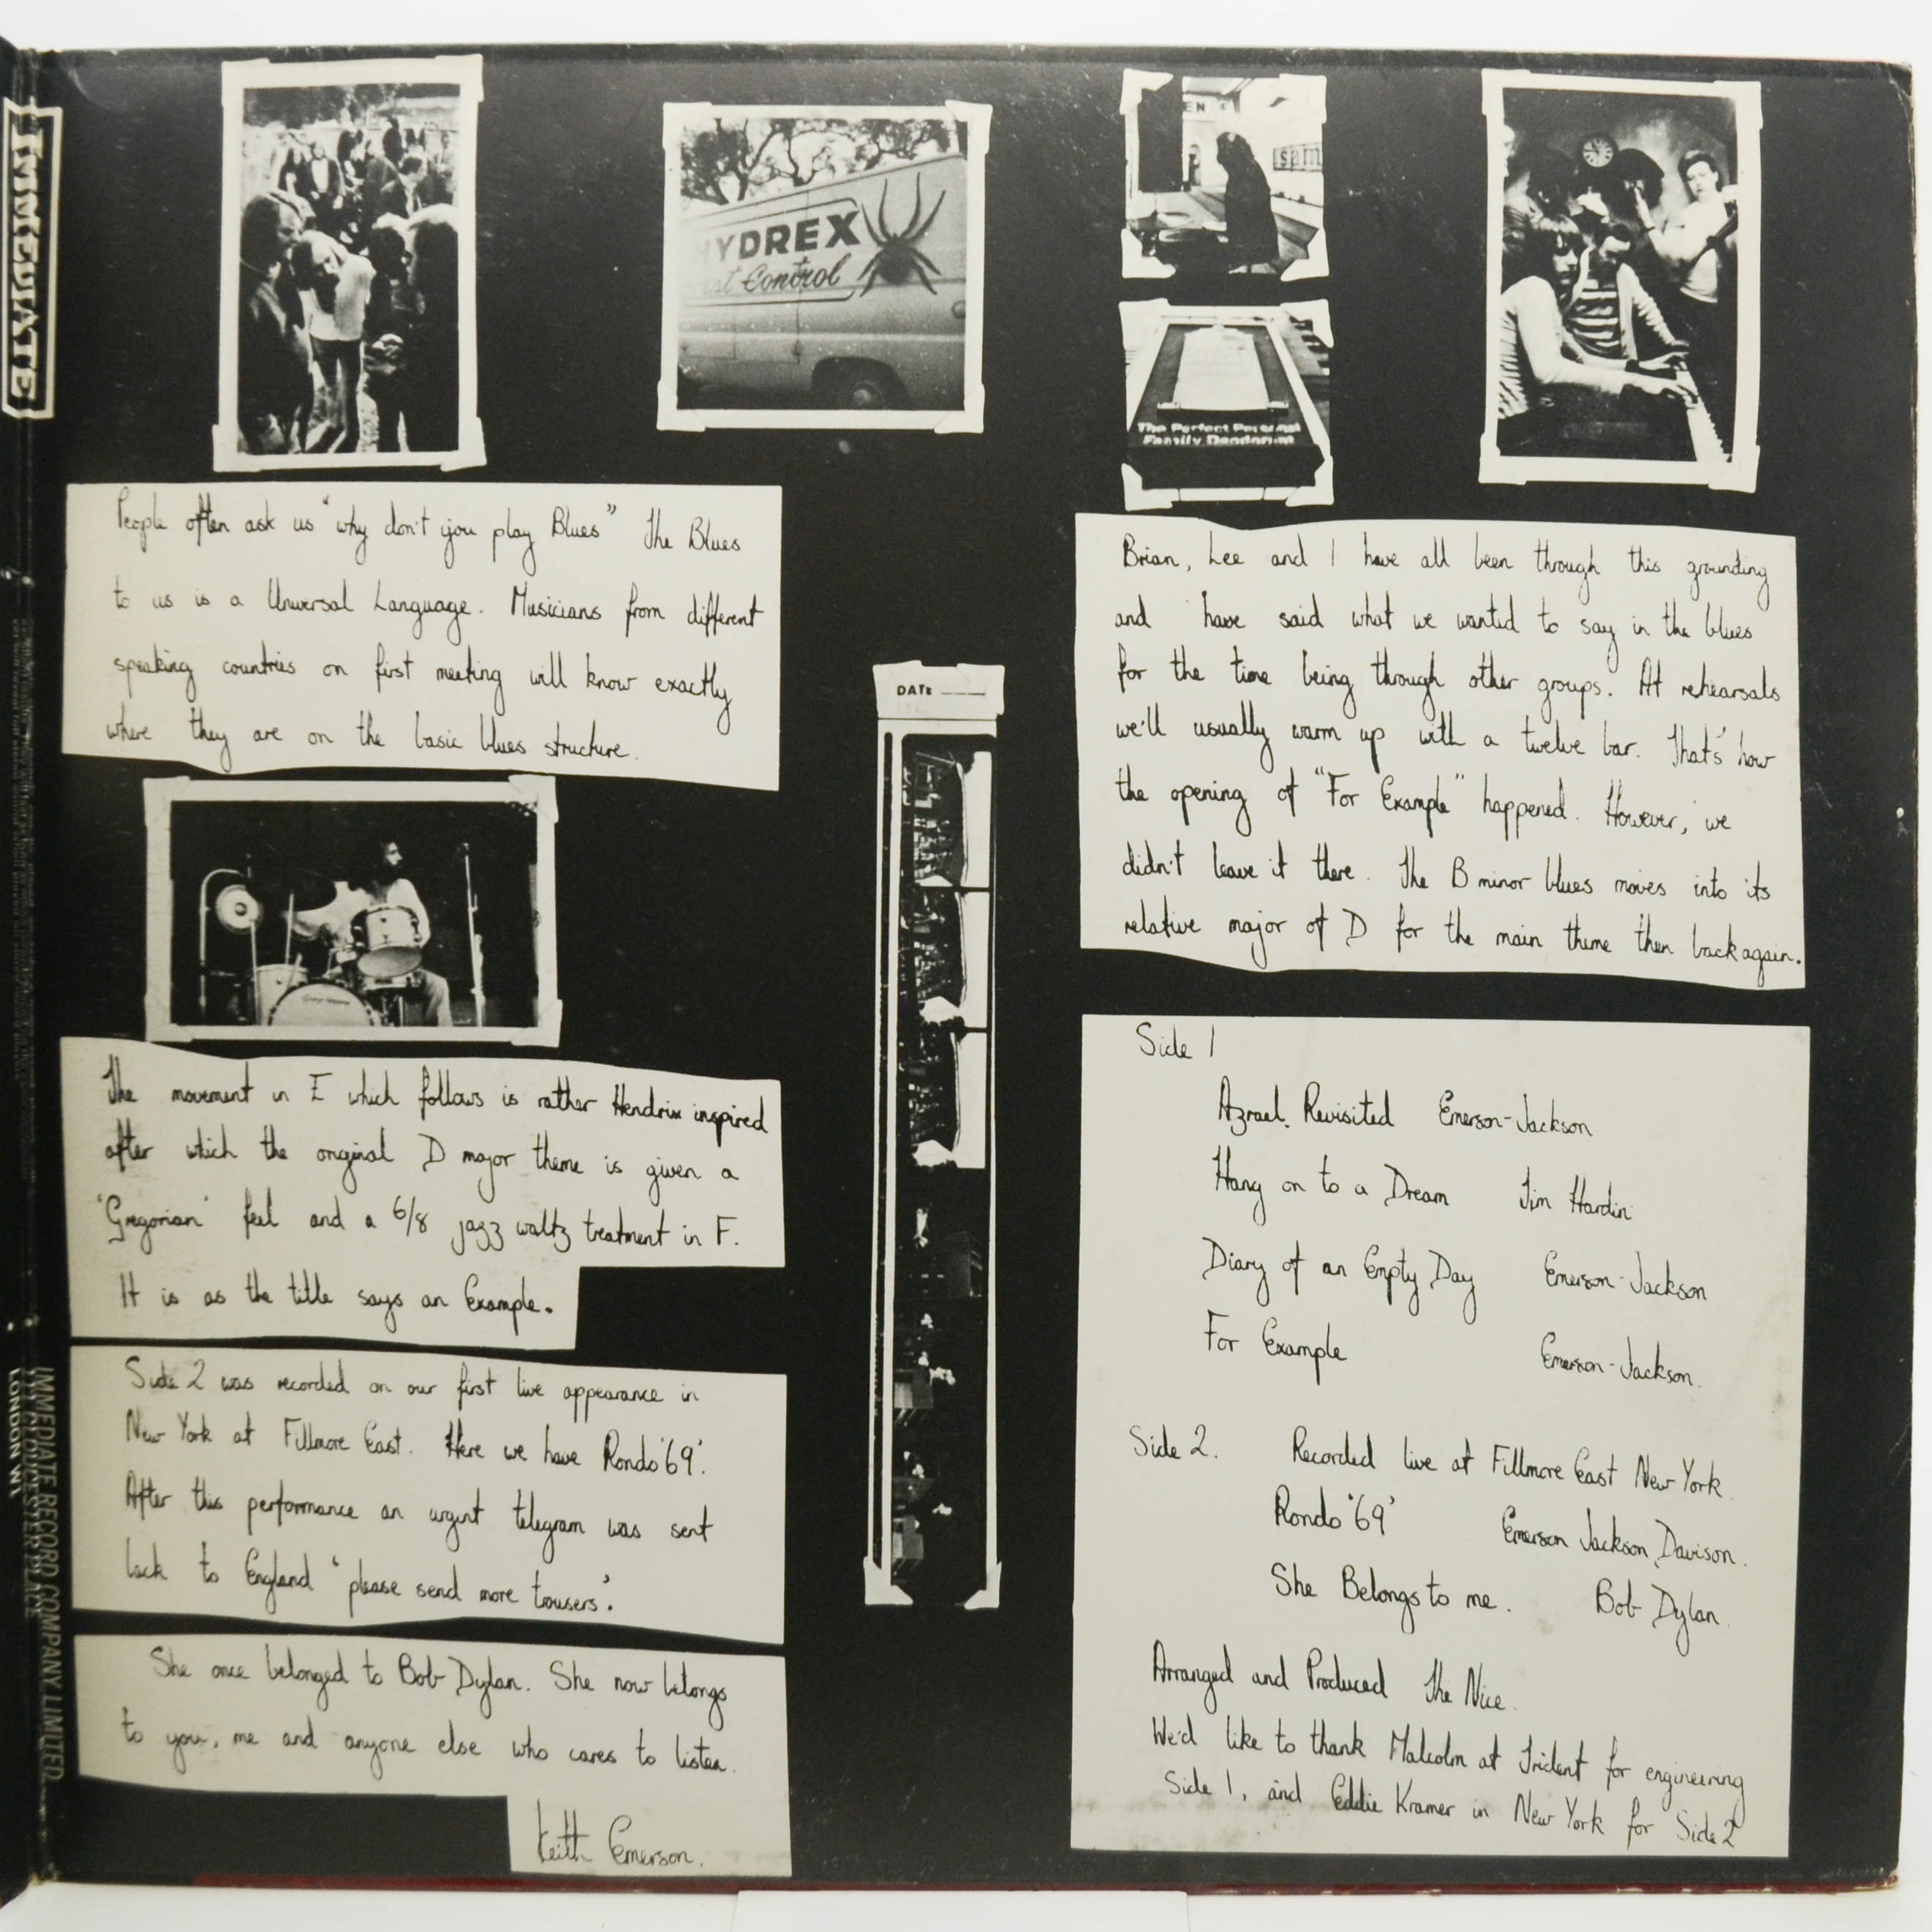 IMMEDIATE
HYDREX
Pest Control
EN
sam
The Perfect Personal
Family Deodorant
People often ask us "why don't you play Blues" The Blues
to us is a Universal Language. Musicians from different
speaking countries on first meeting will know exactly
where they are on the basic blues structure.
DATE
Brian, Lee and I have all been through this grounding
and have said what we wanted to say in the blues
for the time being through other groups. At rehearsals
we'll usually warm up with a twelve bar. That's how
the opening of "For Example" happened. However, we
didn't leave it there. The B minor blues moves into its
relative major of D for the main theme then back again.
The movement in E which follows is rather Hendrix inspired
after which the original D major theme is given a
'Gregorian' feel and a 6/8 jazz waltz treatment in F.
It is as the title says an Example.
Side 2 was recorded on our first live appearance in
New York at Fillmore East. Here we have Rondo '69'.
After this performance an urgent telegram was sent
back to England 'please send more trousers'.
She once belonged to Bob Dylan. She now belongs
to you, me and anyone else who cares to listen.
Keith Emerson.
Side 1
Azrael Revisited Emerson-Jackson
Hang on to a Dream Tim Hardin
Diary of an Empty Day Emerson-Jackson
For Example Emerson-Jackson.
Side 2. Recorded live at Fillmore East New York
Rondo '69' Emerson Jackson Davison.
She Belongs to me. Bob Dylan
Arranged and Produced The Nice.
We'd like to thank Malcolm at Trident for engineering
Side 1, and Eddie Kramer in New York for Side 2
IMMEDIATE RECORD COMPANY LIMITED
LONDON W1